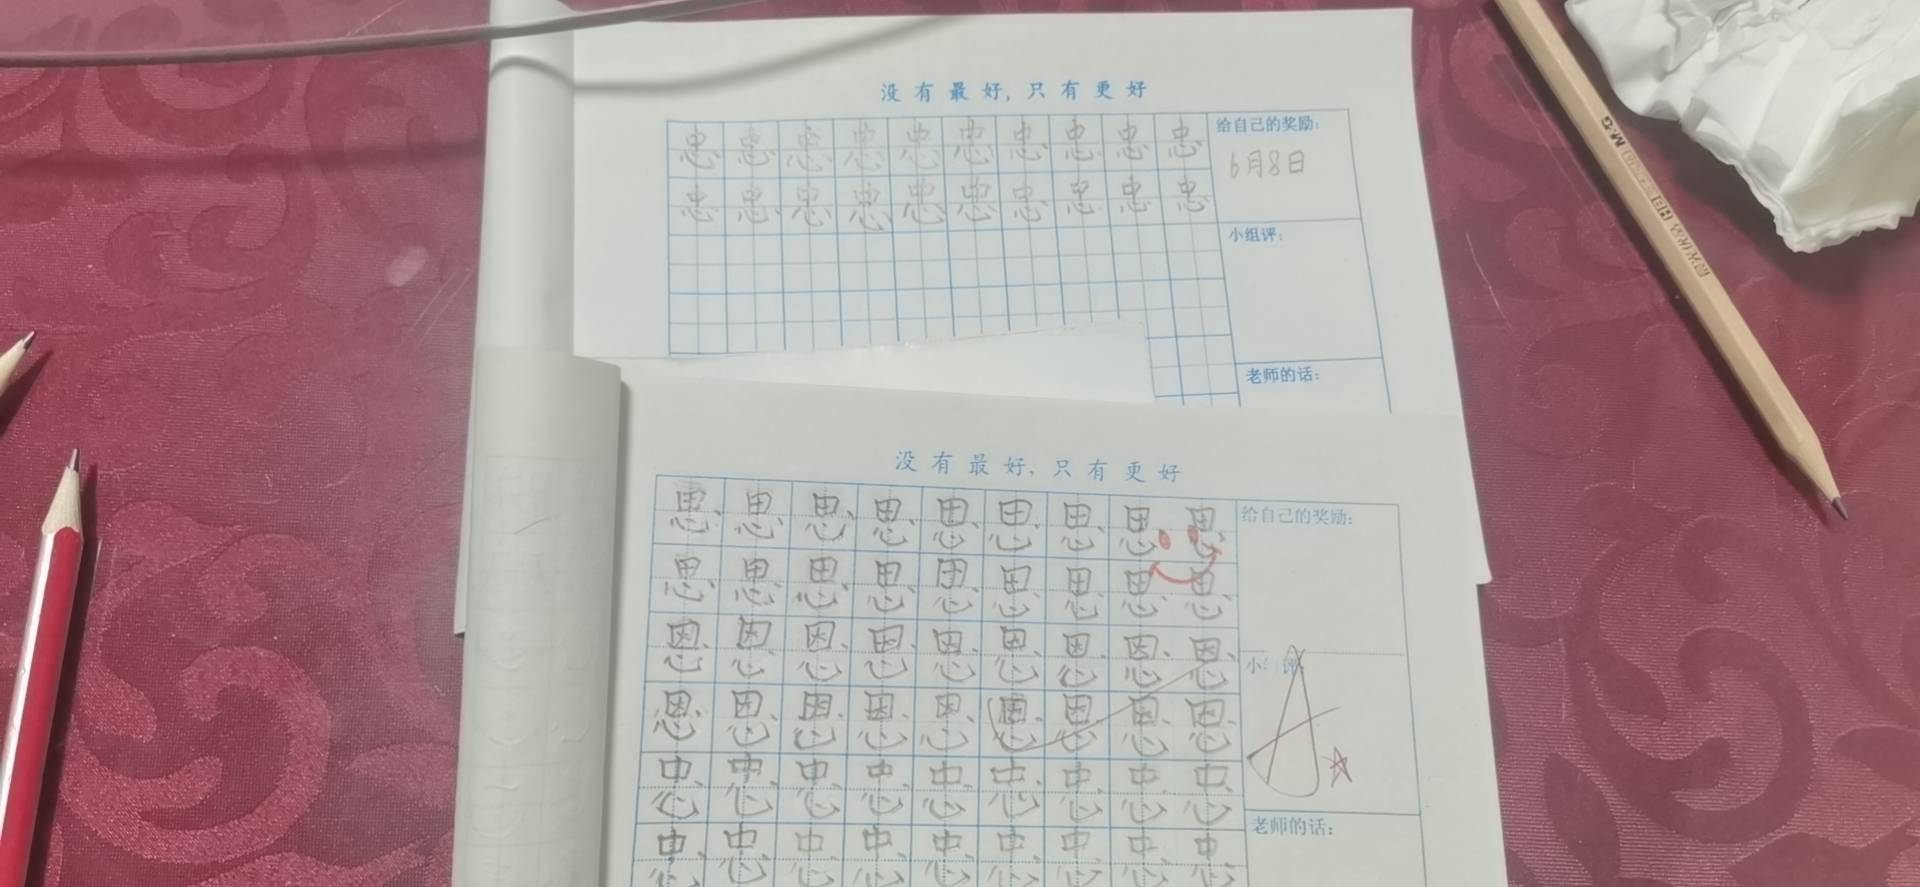 没有最好,只有更好
忠忠忠忠忠忠忠忠忠忠
忠忠忠忠忠忠忠忠忠忠
给自己的奖励:
6月8日
小组评:
老师的话:
没有最好,只有更好
思思思思思思思思思
思思思思思思思思思
恩恩恩恩恩恩恩恩恩
恩恩恩恩恩恩恩恩恩
忠忠忠忠忠忠忠忠忠
忠忠忠忠忠忠忠忠忠
给自己的奖励:
小组评:
A
老师的话:
M&G
HB